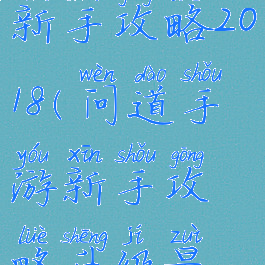 新手攻略20
wèn dào shǒu
18(问道手
yóu xīn shǒu gōng
游新手攻
lüè shēng jí zuì
略升级最